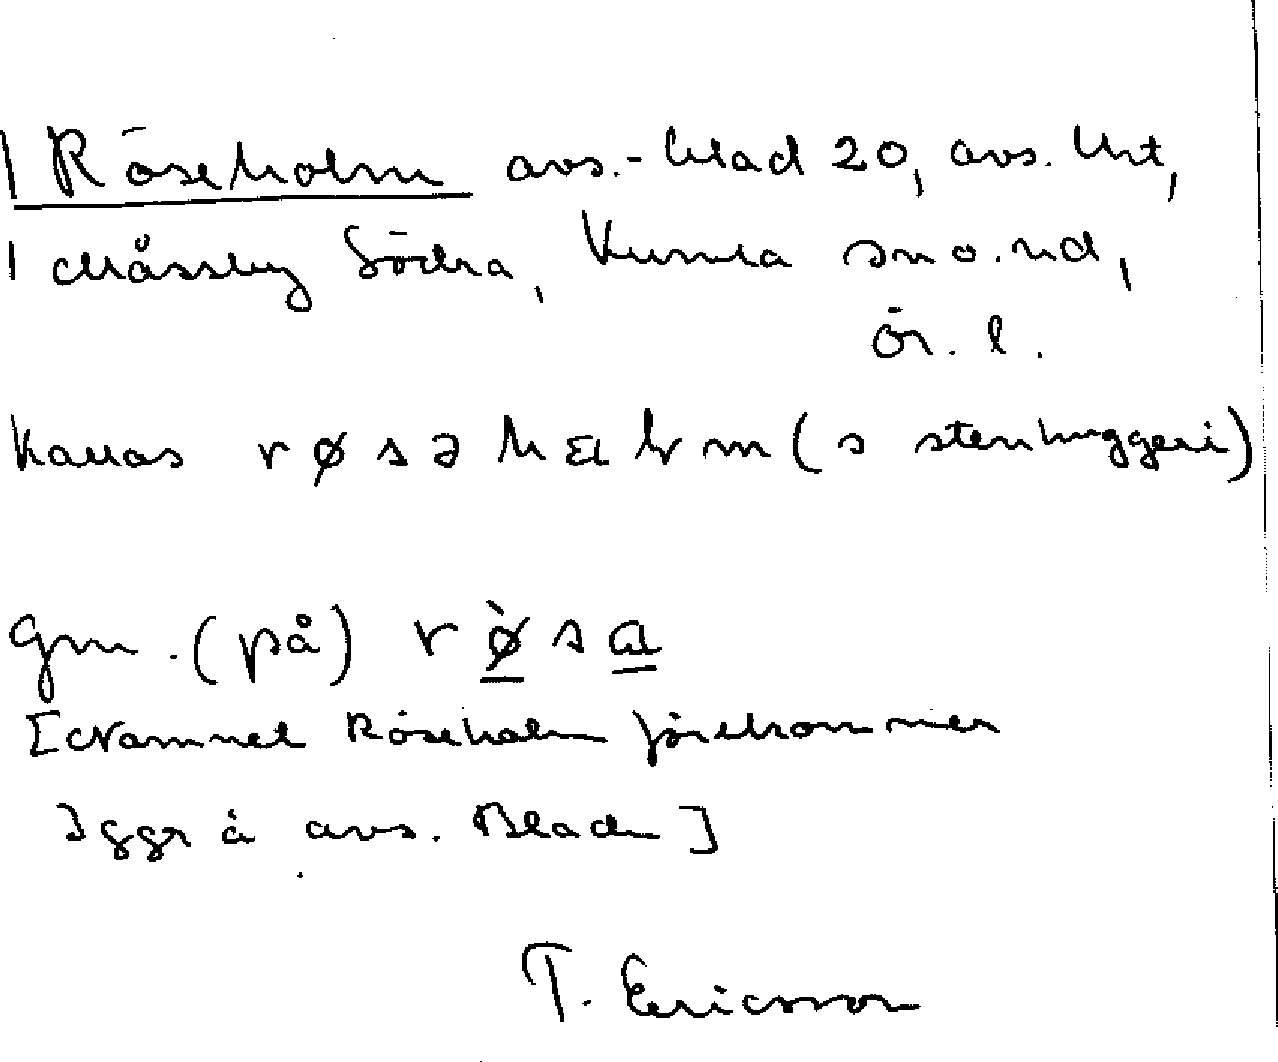 Röseholm avs.-blad 20, avs. lht,
Måssby Södra, Kumla sn o. hd,
ör. l.
Kallas r ø s ə h ɑ l m (s stenhuggeri)
Gm. (på) r ø̀ s ɑ
[Namnet Röseholm förekommer
ggr å avs. Bladen]
T. Ericsson